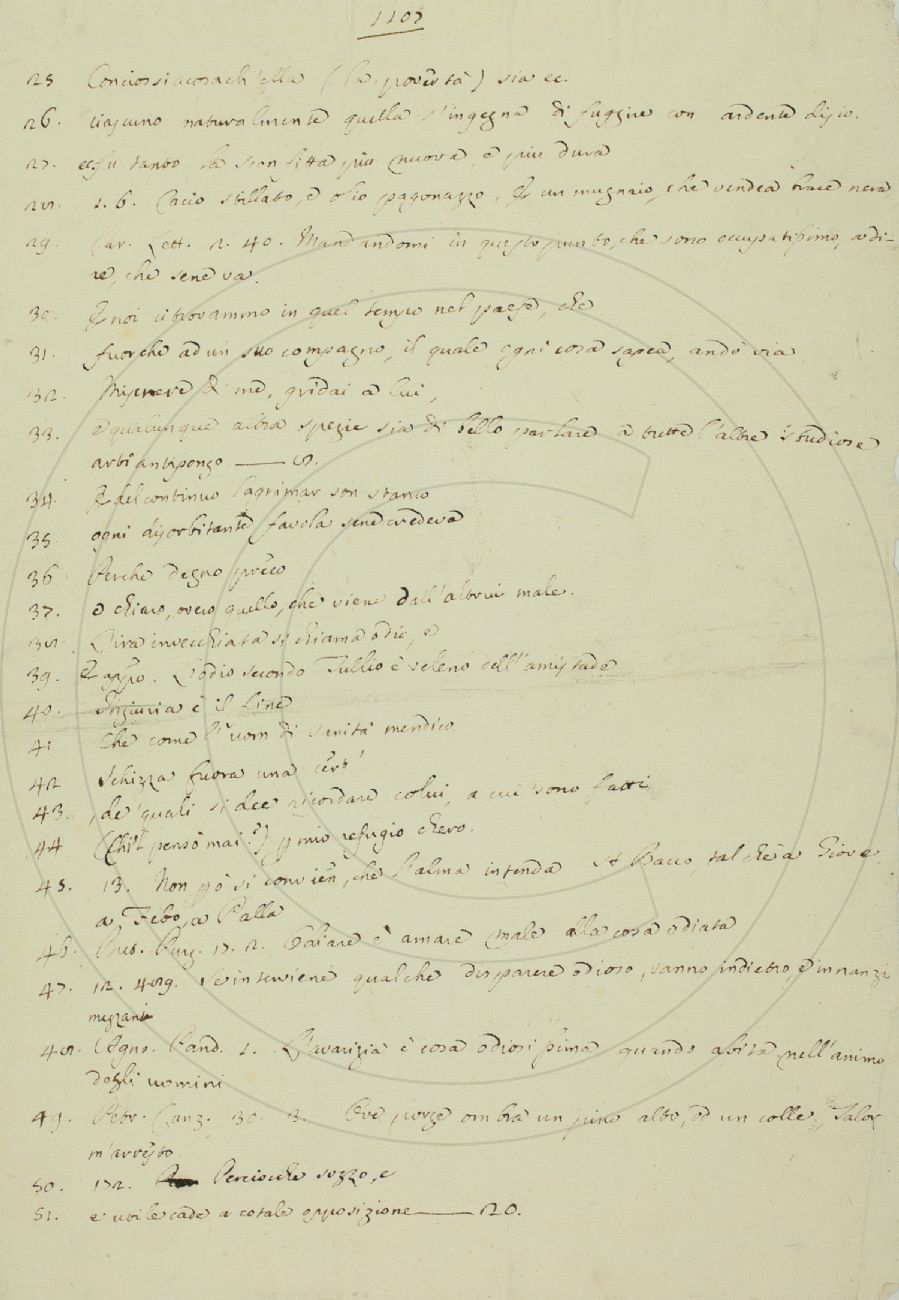 1107
25 Conciossiacosach'ella (la povertà) sia ec.
26. ciascuno naturalmente quella s'ingegna di fuggire con ardente disio.
27. tanto la sconfitta più nuova, e più dura
28. 1. 6. Cacio stillato, e olio pagonazzo, E un mugnaio, che vendea brace nera
29. Car. Lett. 2. 40. Mandandomi in questo punto, che sono occupatissimo, a di-
re, che sene va.
30. E noi ci trovammo in quel tempo nel paese, che
31. fuorchè ad un suo compagno, il quale ogni cosa sapea, andò via
32. Miserere di me, gridai a lui,
33. e qualunque altra spezie sia di bello parlare a tutte l'altre studiose
arti antipongo — 8.
34. E del continuo lagrimar son stanco
35. ogni disorbitante favola sene credeva
36. Perchè degno preco
37. e chiaro, ovvero quello, che viene dall'altrui male.
38. L'ira invecchiata si chiama odio, e
39. E appo. L'odio secondo Tullio è veleno dell'amistade
40. Ingiuria è il fine
41 Che come l'uom di sanità mendico
42 schizza fuora una cert'
43. de' quali si dee ricordare colui, a cui sono fatti
44 (Chi 'l pensò mai?) p mio refugio chero.
45. 13. Non pò si convien, che l'alma intenda A Bacco, talchè a Giove,
a Febo, a Palla
46. But. Purg. 17. 2. Odiare è amare male alla cosa odiata
47. 12. 489. Se interviene qualche disparere odioso, vanno indietro, e innanzi
mezzani
48. Agno. Pand. 1. L'avarizia è cosa odiosissima quando abita nell'animo
degli uomini
49. Petr. Canz. 30. 3. Ove porge ombra un pino alto, od un colle, Talor
m'arresto
50. 172. Perciocchè sozzo, e
51. e utile cade a cotale opposizione — 20.